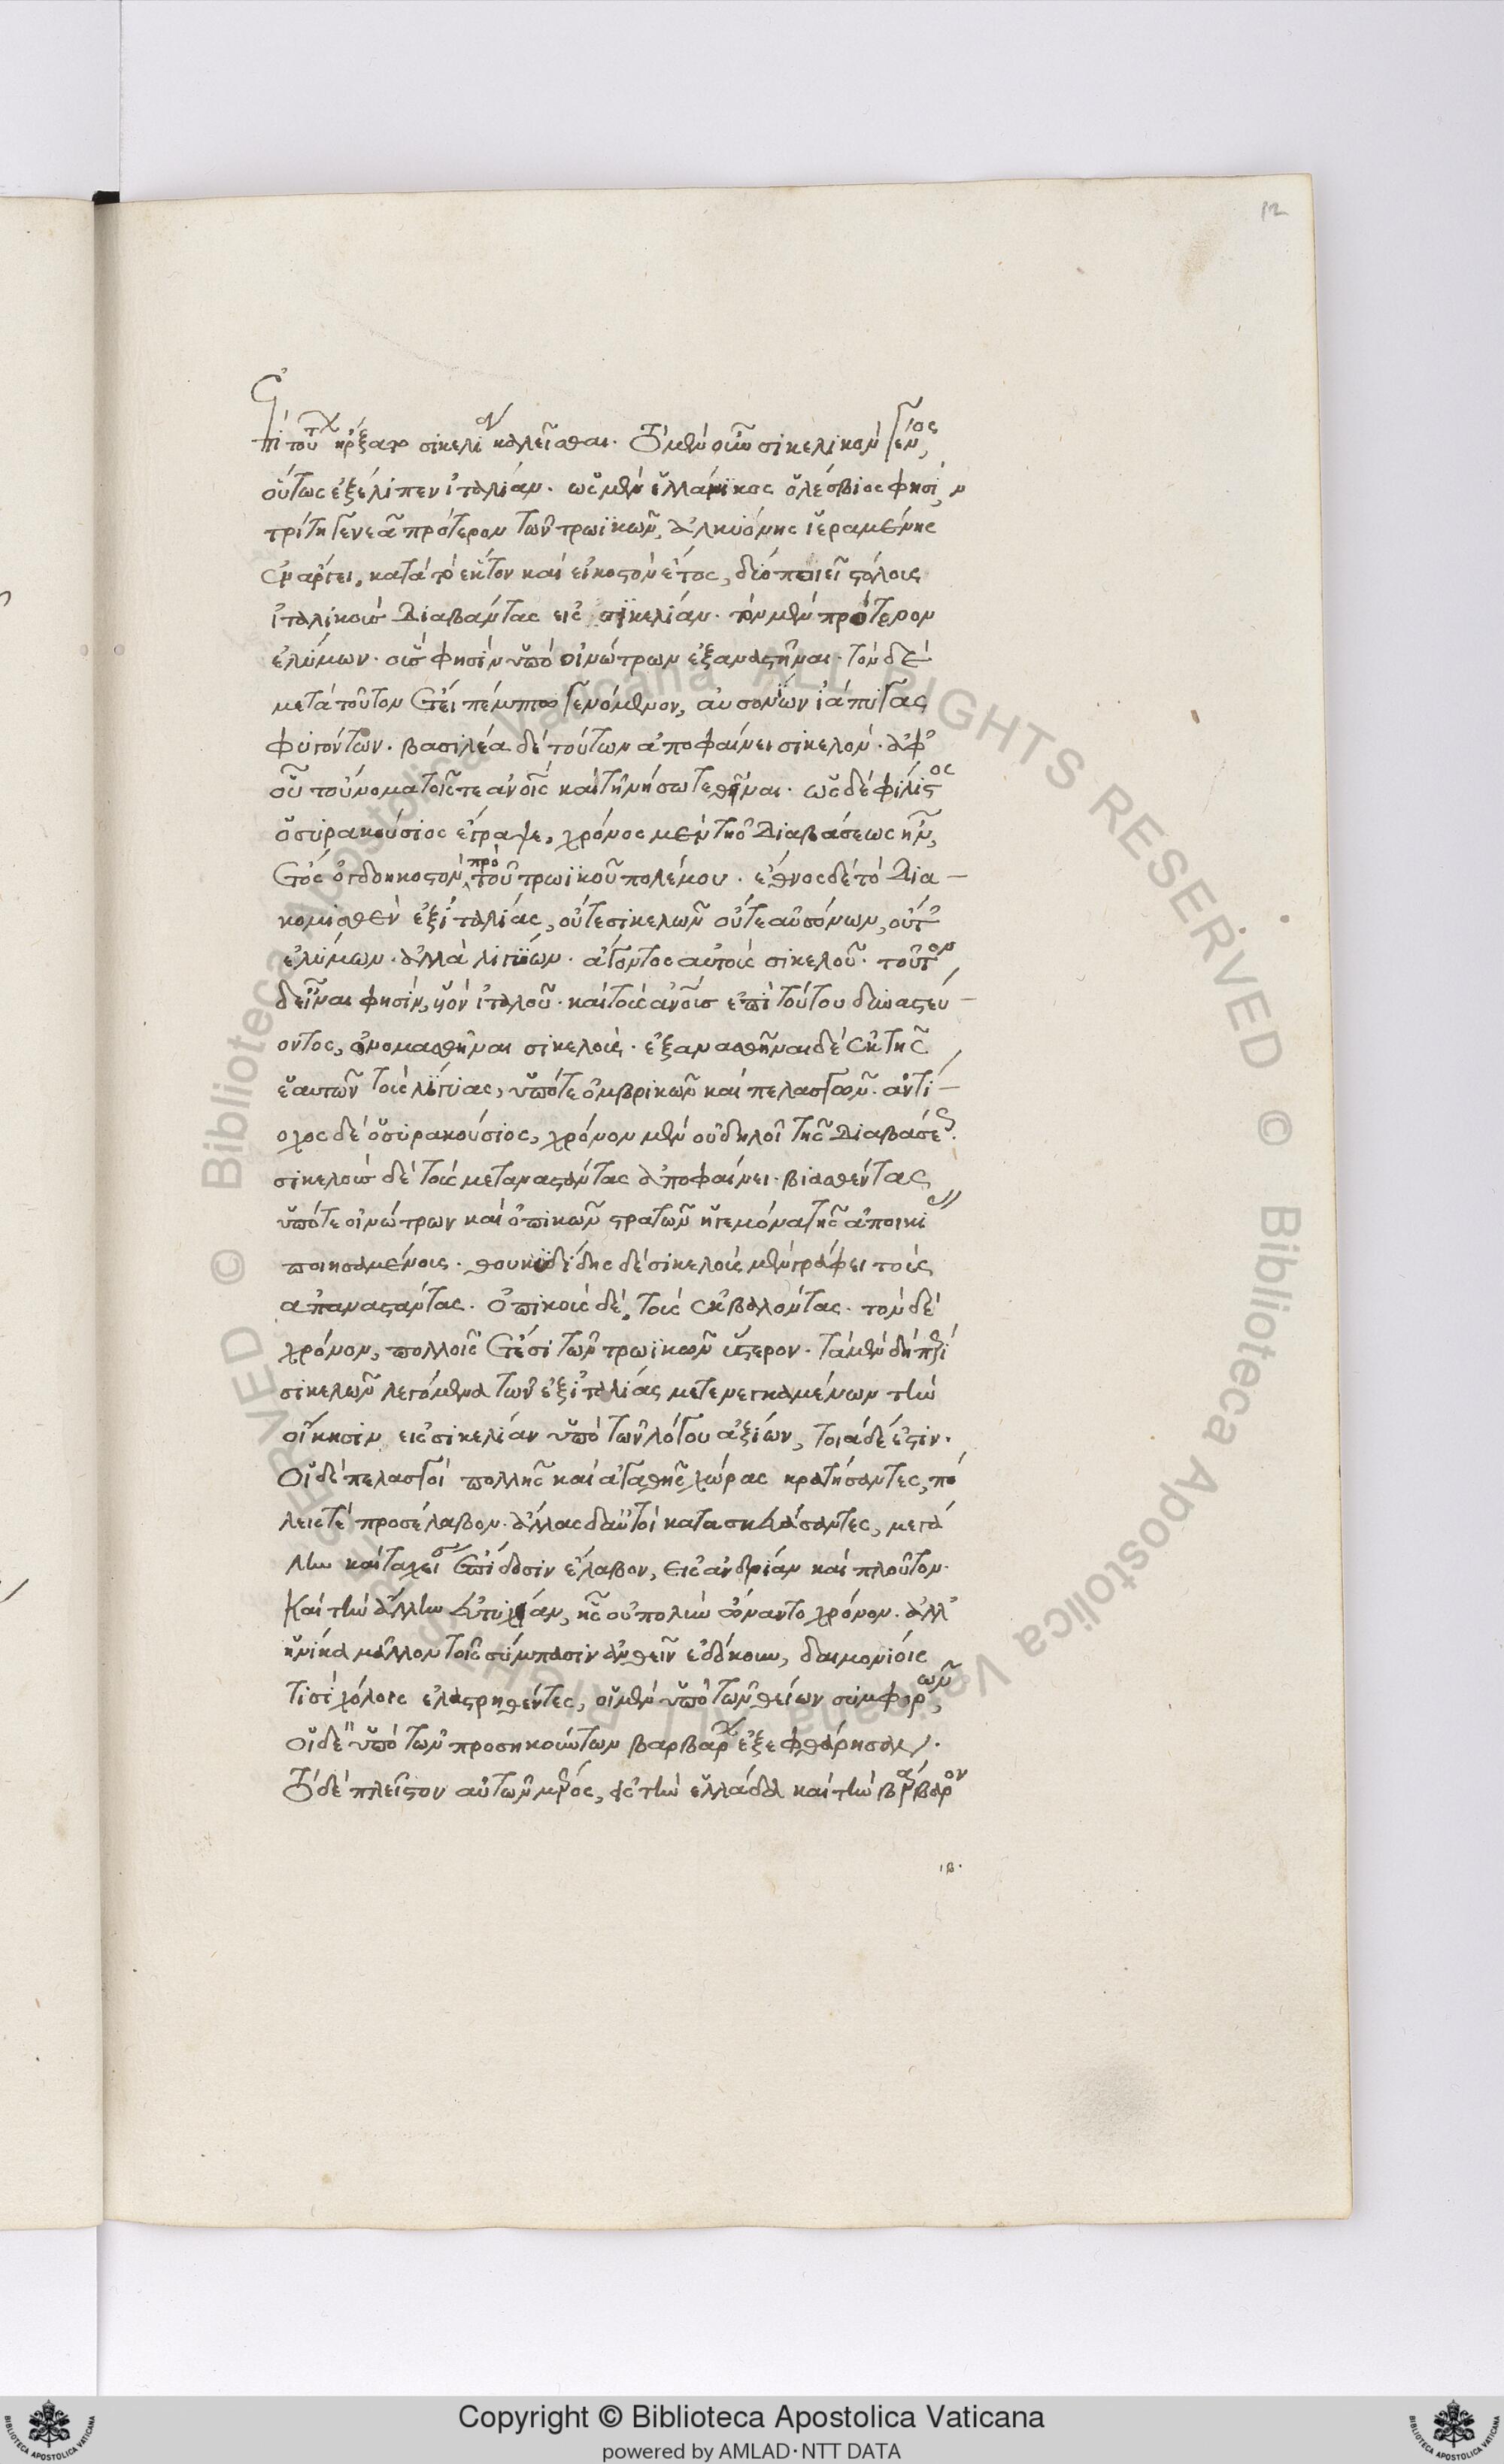 12
ἐπὶ τούτων ἤρξατο σικελία καλεῖσθαι. τὸ μὲν οὖν σικελικὸν γένος,
οὕτως ἐξέλιπεν ἰταλίαν. ὡς μὲν ἑλλάνικος ὁ λέσβιος φησὶν
τρίτη γενεᾶ πρότερον τῶν τρωϊκῶν, ἀλκυόνης ἱεραμένης
ἐν ἄργει, κατὰ τὸ ἕκτον καὶ εἰκοστὸν ἔτος, δύο ποιεῖ στόλους
ἰταλικοὺς διαβάντας εἰς σικελίαν. τὸν μὲν πρότερον
ἐλύμων. οὓς φησὶν ὑπὸ οἰνώτρων ἐξαναστῆναι. τὸν δὲ
μετὰ τοῦτον ἔτει πέμπτω γενόμενον, αὐσονίων ἰάπυγας
φυγόντων. βασιλέα δὲ τούτων ἀποφαίνει σικελόν. ἀφ'
οὗ τοὔνομα τοῖς τε ἀνοις καὶ τῆ νήσω τεθῆναι. ὡς δὲ φίλιστος
ὁ συρακούσιος ἔγραψε, χρόνος μὲν τῆς διαβάσεως ἦν,
ἔτος ὀγδοηκοστὸν πρὸ τοῦ τρωϊκοῦ πολέμου. ἔθνος δὲ τὸ δια-
κομισθὲν ἐξ ἰταλίας, οὔτε σικελῶν οὔτε αὐσόνων, οὔτ'
ἐλύμων. ἀλλὰ λιγύων. ἄγοντος αὐτοὺς σικελοῦ. τοῦτον
δεῖναι φησὶν, υἱὸν ἰταλοῦ. καὶ τοὺς ἀνους ἐπὶ τούτου δυναστεύ-
οντος, ὀνομασθῆναι σικελούς. ἐξανασθῆναι δὲ ἐκ τῆς
ἑαυτῶν τοὺς λίγυας, ὑπό τε ὀμβρικῶν καὶ πελασγῶν. ἀντί-
οχος δὲ ὁ συρακούσιος, χρόνον μὲν οὐ δηλοῖ τῆς διαβάσεως.
σικελοὺς δὲ τοὺς μεταναστάντας ἀποφαίνει. βιασθέντας
ὑπό τε οἰνώτρων καὶ ὀπικῶν στρατῶν ἡγεμόνα τῆς ἀποικίας
ποιησαμένους. θουκυδίδης δὲ σικελοὺς μὲν γράφει τοὺς
ἀπαναστάντας. ὀπικοὺς δὲ, τοὺς ἐκβαλόντας. τὸν δὲ
χρόνον, πολλοῖς ἔτεσι τῶν τρωϊκῶν ὕστερον. τὰ μὲν δὴ περὶ
σικελῶν λεγόμενα τῶν ἐξ ἰταλίας μετενεγκαμένων τὴν
οἴκησιν εἰς σικελίαν ὑπὸ τῶν λόγου ἀξίων, τοιάδε ἐστίν.
οἱ δὲ πελασγοὶ πολλῆς καὶ ἀγαθῆς χώρας κρατήσαντες, πό
λεις τὲ προσέλαβον. ἄλλας δ αὐτοὶ κατασκευάσαντες, μεγά
λην καὶ ταχεῖαν ἐπίδοσιν ἔλαβον, εἰς ἀνδρίαν καὶ πλοῦτον.
καὶ τὴν ἄλλην εὐτυχίαν, ἧς οὐ πολὺν ὤναντο χρόνον. ἀλλ'
ἡνίκα μάλλον τοῖς σύμπασιν ἀνθεῖν ἐδόκουν, δαιμονίοις
τισὶ χόλοις ἐλαστρηθέντες, οἱ μὲν ὑπὸ τῶν θείων συμφορῶν,
οἱ δὲ ὑπὸ τῶν προσηκούντων βαρβάρων ἐξεφθάρησαν.
τὸ δὲ πλεῖστον αὐτῶν μέρος, εἰς τὴν ἑλλάδα καὶ τὴν βάρβαρον
ιβ.
Copyright © Biblioteca Apostolica Vaticana
powered by AMLAD·NTT DATA